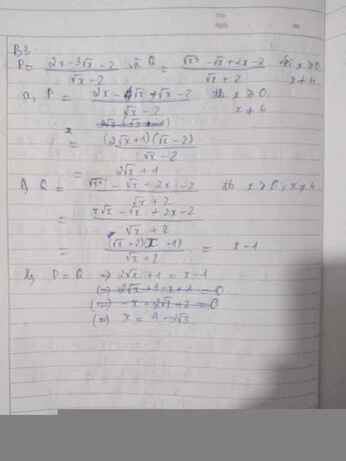 B3
P = (2x - 3√x - 2)/(√x - 2) và Q = (√x³ - √x + 2x - 2)/(√x + 2) đk x ≥ 0, x ≠ 4
a, P = (2x - 4√x + √x - 2)/(√x - 2) đk x ≥ 0, x ≠ 4
= ((2√x + 1)(√x - 2))/(√x - 2)
= 2√x + 1
Q = (√x³ - √x + 2x - 2)/(√x + 2) đk x ≥ 0, x ≠ 4
= (x√x - √x + 2x - 2)/(√x + 2)
= ((√x + 2)(x - 1))/(√x + 2) = x - 1
b, P = Q => 2√x + 1 = x - 1